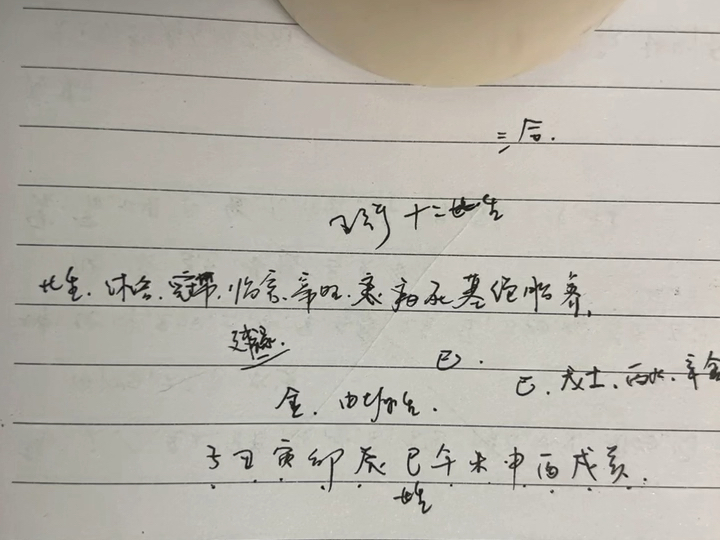 三合.
五行十二长生
长生、沐浴、冠带、临官、帝旺、衰病死墓绝胎养,
建禄.
巳.
巳、戊土、丙火、辛金
金、由长生.
子丑寅卯辰巳午未申酉戌亥.
长生